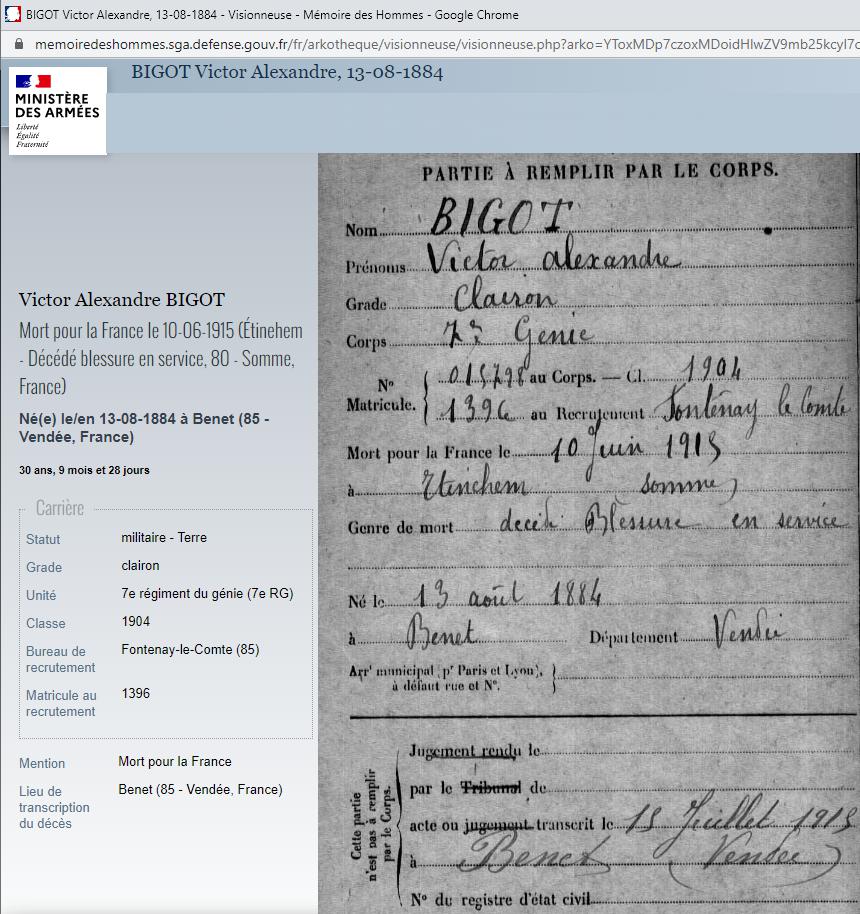 BIGOT Victor Alexandre, 13-08-1884 - Visionneuse - Mémoire des Hommes - Google Chrome
memoiredeshommes.sga.defense.gouv.fr/fr/arkotheque/visionneuse/visionneuse.php?arko=
BIGOT Victor Alexandre, 13-08-1884
MINISTÈRE
DES ARMÉES
Liberté
Égalité
Fraternité
Victor Alexandre BIGOT
Mort pour la France le 10-06-1915 (Étinehem
- Décédé blessure en service, 80 - Somme,
France)
Né(e) le/en 13-08-1884 à Benet (85 -
Vendée, France)
30 ans, 9 mois et 28 jours
Carrière
Statut militaire - Terre
Grade clairon
Unité 7e régiment du génie (7e RG)
Classe 1904
Bureau de
recrutement Fontenay-le-Comte (85)
Matricule au
recrutement 1396
Mention Mort pour la France
Lieu de
transcription
du décès Benet (85 - Vendée, France)
PARTIE À REMPLIR PAR LE CORPS.
Nom BIGOT
Prénoms Victor alexandre
Grade Clairon
Corps 7e Génie
No Matricule. 015798 au Corps. — Cl. 1904
1396 au Recrutement Fontenay le Comte
Mort pour la France le 10 Juin 1915
à Etinehem somme
Genre de mort décédé Blessure en service
Né le 13 août 1884
à Benet Département Vendée
Arrt municipal (pr Paris et Lyon),
à défaut rue et No.
Cette partie
n'est pas à remplir
par le Corps.
Jugement rendu le
par le Tribunal de
acte ou jugement transcrit le 15 Juillet 1915
à Benet (Vendée)
No du registre d'état civil